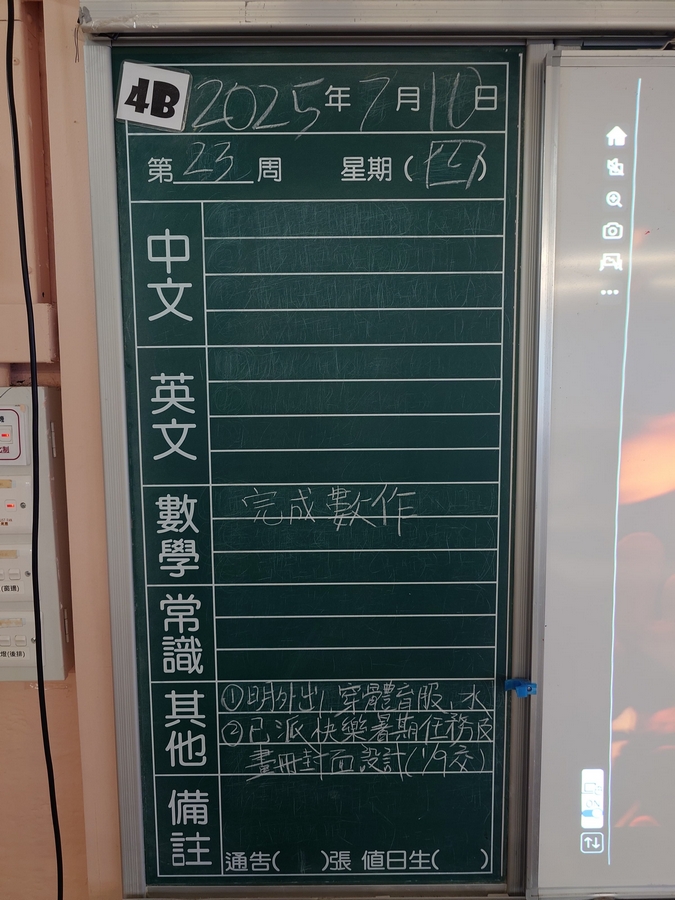 4B 2025年7月10日
第23周 星期(四)
中文
英文
數學 完成數作
常識
其他 ①明外出,穿體育服,水
②已派快樂暑期任務及
畫冊封面設計(1/9交)
備註 通告( )張 值日生( )